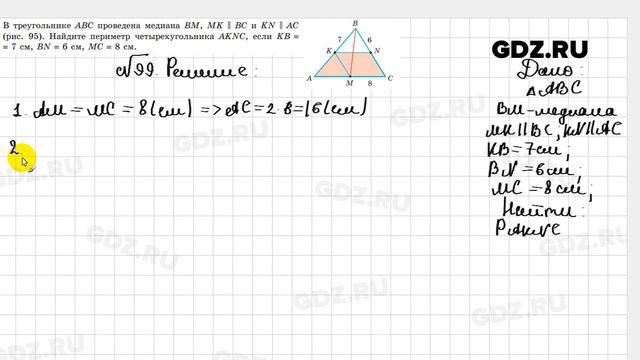 В треугольнике ABC проведена медиана BM, MK ∥ BC и KN ∥ AC
(рис. 95). Найдите периметр четырехугольника AKNC, если KB =
= 7 см, BN = 6 см, MC = 8 см.
B
7 6
K N
A M 8 C
GDZ.RU
№99. Решение:
Дано:
△ABC
BM-медиана
MK∥BC, KN∥AC
KB=7см;
BN=6см;
MC=8см;
Найти:
PAKNC
1. AM=MC=8(см) => AC=2·8=16(см)
2.
GDZ.RU
GDZ.RU
GDZ.RU
GDZ.RU
GDZ.RU